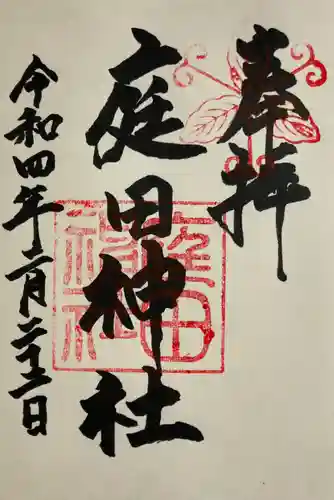 奉拝
庭田神社
令和四年二月二十一日
庭田神社